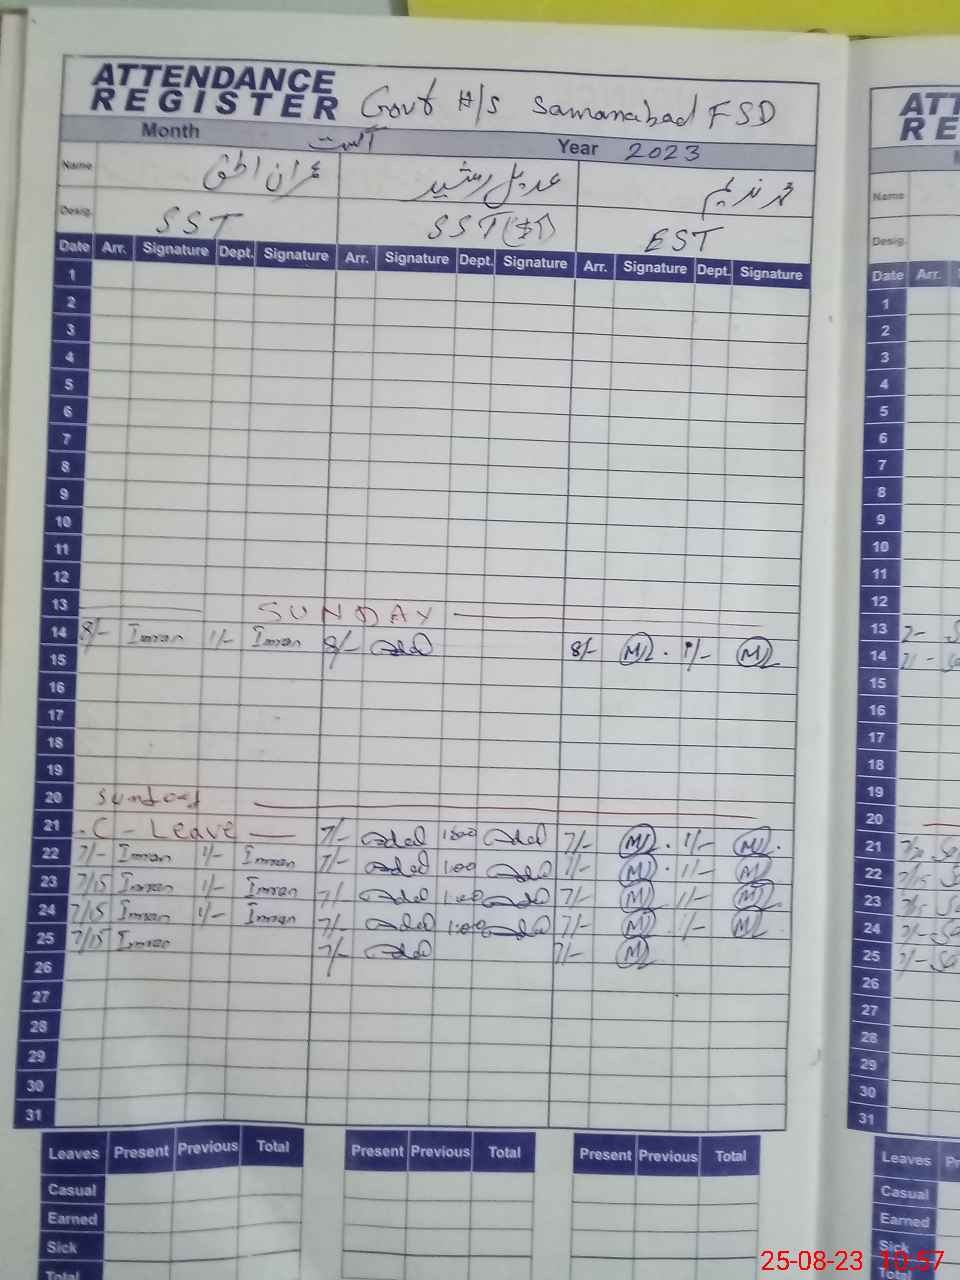 ATTENDANCE
REGISTER Govt H/S Samanabad FSD
Month اگست Year 2023
Name عمران الحق عدیل رشید محمد ندیم
Desig. SST SST EST
Date Arr. Signature Dept. Signature Arr. Signature Dept. Signature Arr. Signature Dept. Signature
1
2
3
4
5
6
7
8
9
10
11
12
13 SUNDAY
14 8/- Imran 1/- Imran 8/- Adeel 8/- 1/-
15
16
17
18
19
20 Sunday
21 C-Leave 7/- Adeel 1:00 Adeel 7/- 1/-
22 7/- Imran 1/- Imran 7/- Adeel 1:00 Adeel 7/- 1/-
23 7/15 Imran 1/- Imran 7/- Adeel 1:00 Adeel 7/- 1/-
24 7/15 Imran 1/- Imran 7/- Adeel 1:00 Adeel 7/- 1/-
25 7/15 Imran 7/- Adeel 7/-
26
27
28
29
30
31
Leaves Present Previous Total Present Previous Total Present Previous Total
Casual
Earned
Sick
Total
ATT
RE
Name
Desig.
Date Arr.
1
2
3
4
5
6
7
8
9
10
11
12
13
14
15
16
17
18
19
20
21
22 7/15
23 7/15
24 7/-
25 7/-
26
27
28
29
30
31
Leaves
Casual
Earned
Sick
Total
25-08-23 10:57